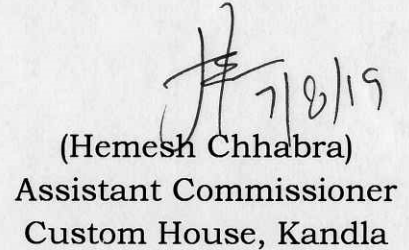 7/8/19
(Hemesh Chhabra)
Assistant Commissioner
Custom House, Kandla